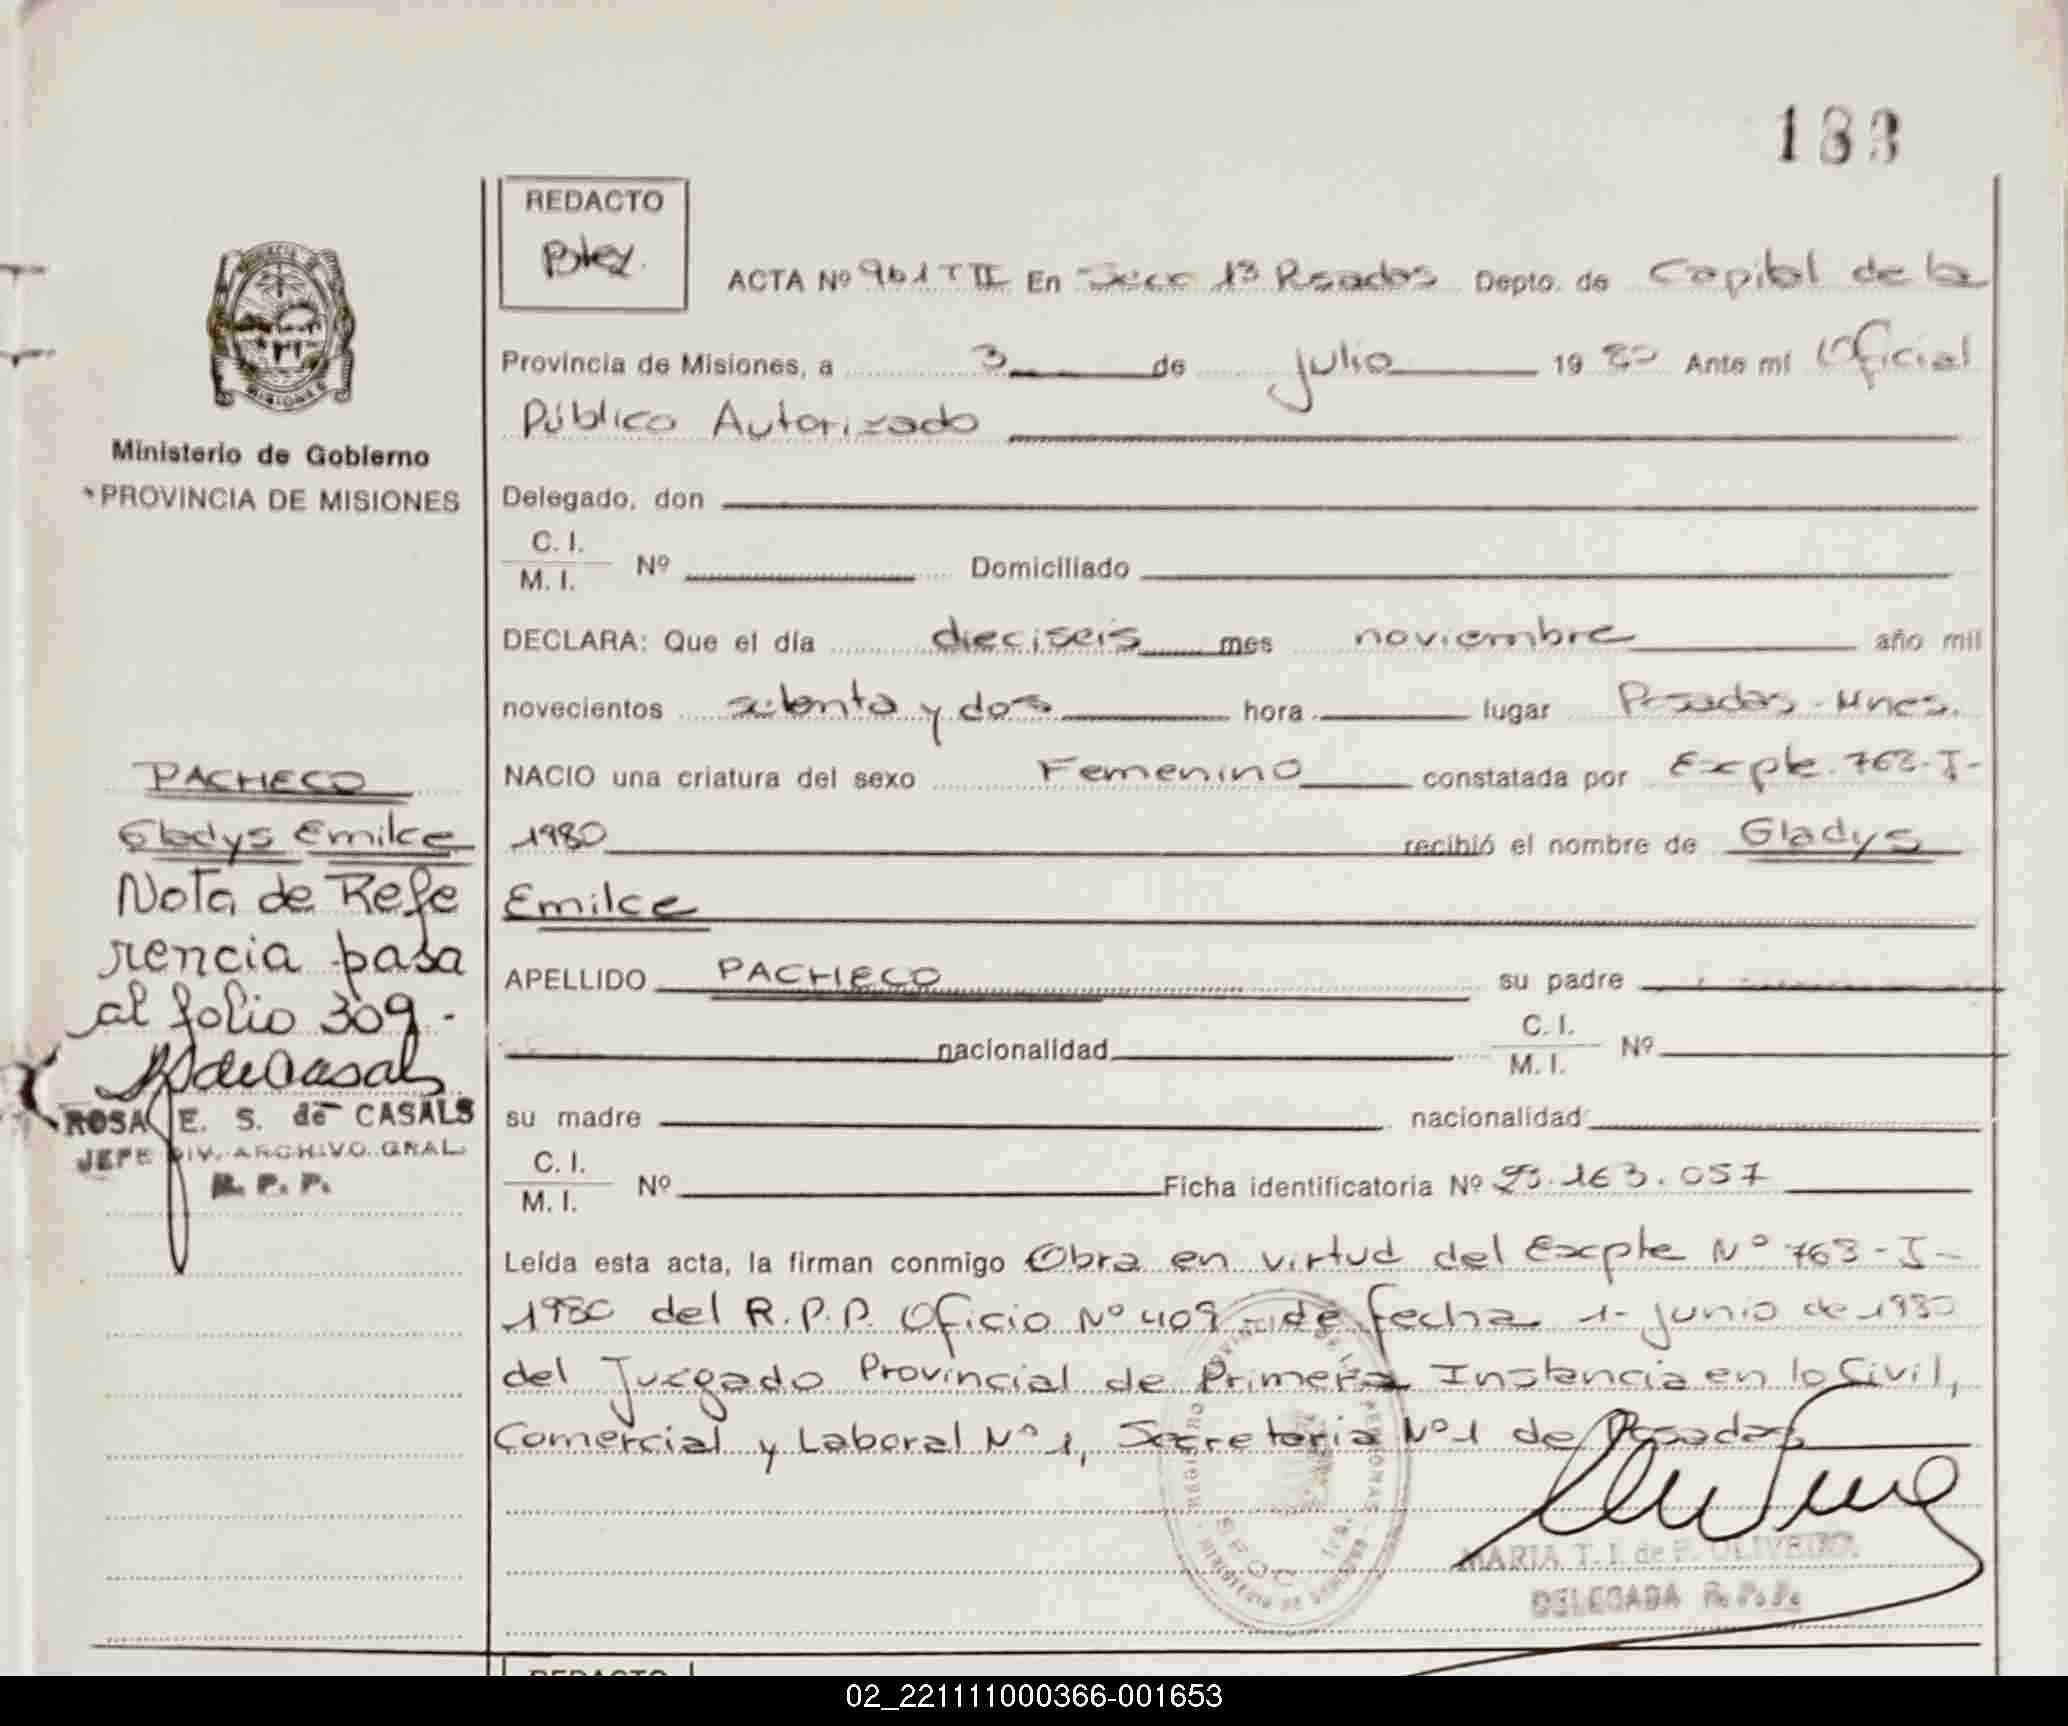 183
REDACTO
ACTA Nº 961 T II En Secc 1ª Posadas Depto. de Capital de la
Provincia de Misiones, a 3 de julio 1980 Ante mí Oficial
Público Autorizado
Delegado, don
C. I.
M. I. Nº Domiciliado
DECLARA: Que el día dieciseis mes noviembre año mil
novecientos setenta y dos hora lugar Posadas - Mnes.
NACIO una criatura del sexo Femenino constatada por Expte. 763-I-
1980 recibió el nombre de Gladys
Emilce
APELLIDO PACHECO su padre
nacionalidad C. I.
M. I. Nº
su madre nacionalidad
C. I.
M. I. Nº Ficha identificatoria Nº 23.163.057
Leída esta acta, la firman conmigo Obra en virtud del Expte Nº 763-I-
1980 del R.P.P. Oficio Nº 409 - de fecha 1- junio de 1980
del Juzgado Provincial de Primera Instancia en lo Civil,
Comercial y Laboral Nº 1, Secretaria Nº 1 de Posadas
MARIA T. I. de OLIVEIRA
DELEGADA R. P. P.
REGISTRO PROVINCIAL DE LAS PERSONAS
MINISTERIO DE GOBIERNO
PROVINCIA DE MISIONES
Ministerio de Gobierno
PROVINCIA DE MISIONES
PACHECO
Gladys Emilce
Nota de Refe
rencia pasa
al folio 309.-
ROSA E. S. de CASALS
JEFE DIV. ARCHIVO GRAL.
R. P. P.
REDACTO
02_221111000366-001653